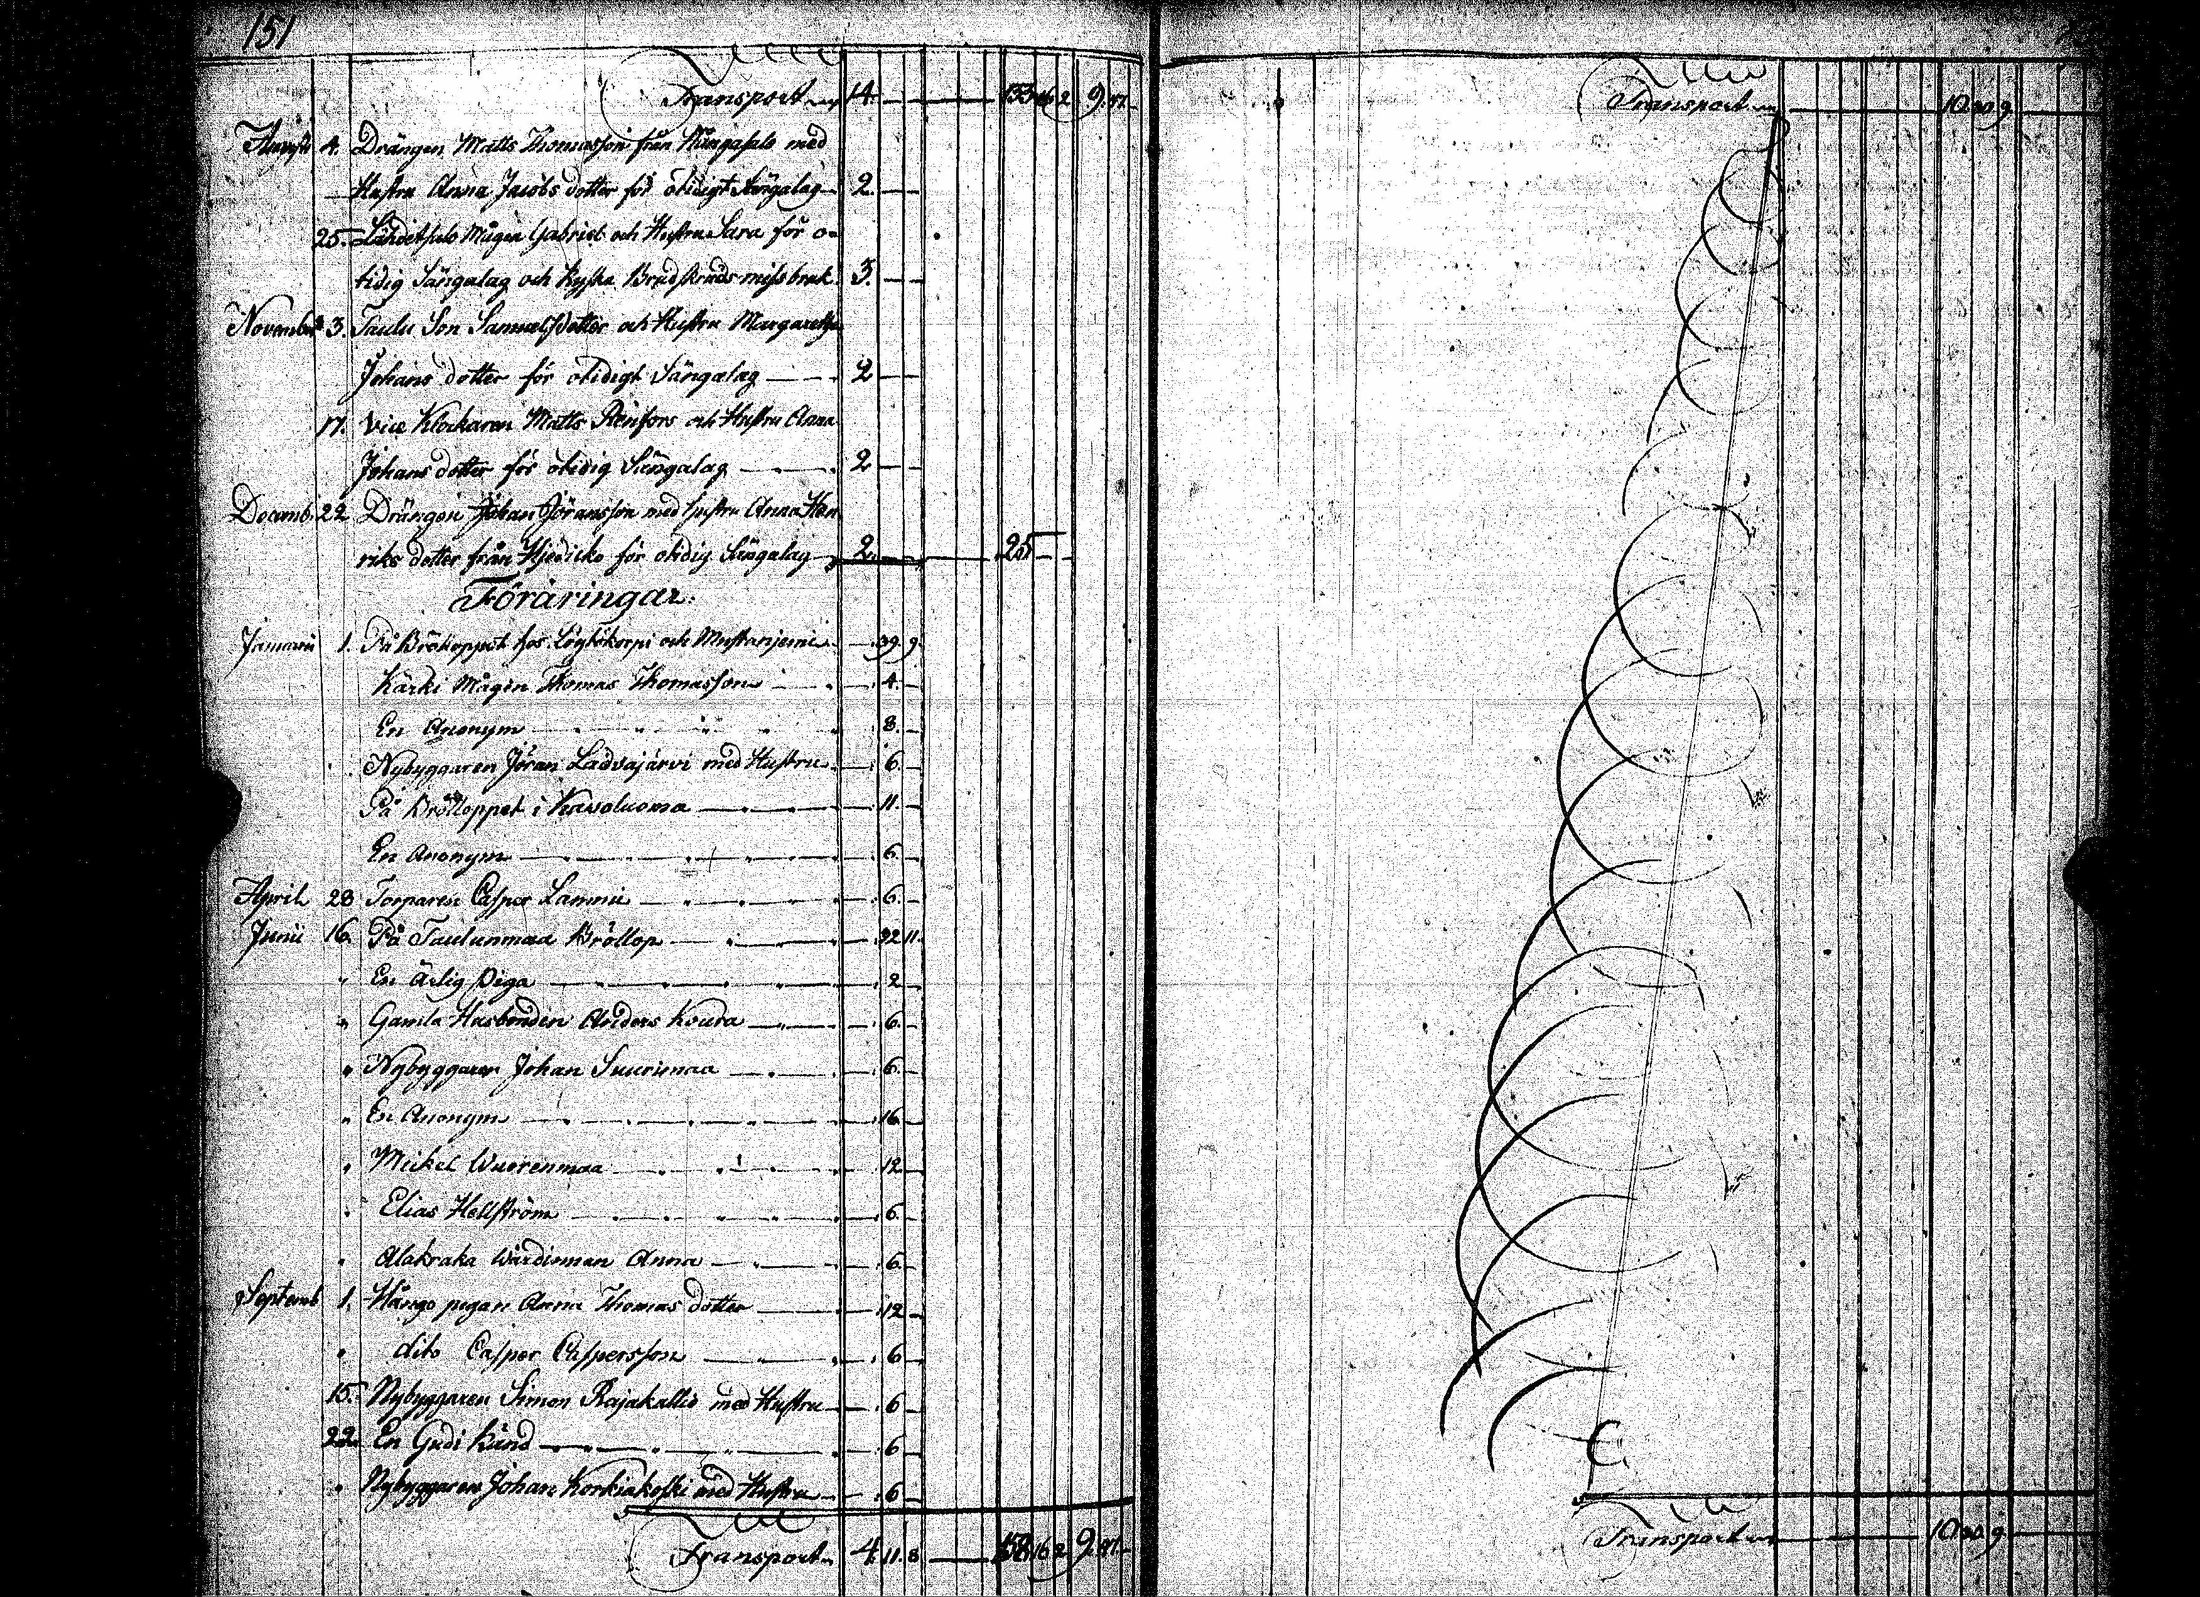 151
Transport 14. — 133 16 2 9. 17.
4. Drängen Matts Thomasson från med
Hustru Anna Jacobs dotter för otidigt Sängalag 2. —
25. Mågen Gabriel och Hustru Sara för o-
tidig Sängalag och Kyska Brudskruds missbruk 3. —
Novemb 3. Taulu Son och Hustru Margaretha
Johans dotter för otidigt Sängalag — 2 —
17. Vice Klockaren Matts Renfors och Hustru Anna
Johans dotter för otidig Sängalag — 2 —
Decemb. 22 Drängen Johan Jöransson med hustru Anna Hen
riks dotter från för otidig Sängalag 2. — 25 —
Föräringar.
Januarii 1. På Brölloppet hos och Mustanjemi — 39. 9.
Kärki Mågen Thomas Thomasson — 4. —
En Anonym 8. —
Nybyggaren Jöran Ladvajärvi med Hustru — 6. —
På Brölloppet i — 11. —
En Anonym — 6. —
April 28 Torparen Casper Lammi — 6. —
Junii 16. På Taulunmaa Bröllop — 22 11.
" En Ärlig Piga — 2 —
" Gamla Husbonden Anders Koura — 6. —
" Nybyggaren Johan Suurimaa — 6. —
" En Anonym — 16 —
" Mickel Wuorenmaa — 12 —
" Elias Hellström — 6. —
" Alakraka Wärdinnan Anna — 6 —
Septemb 1. Hånga pigan Anna Thomas dotter — 12 —
" dito Casper Caspersson — 6 —
15. Nybyggaren Simon Rajakallio med Hustru — 6 —
22. En — 6 —
" Nybyggaren Johan Korkiakoski med Hustru — 6 —
Transport 4. 11. 8 — 158 16 2 9. 17. —
Transport — 10 20 9
Transport — 10 20 9